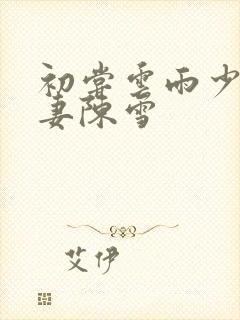 初尝雲雨少
妻陳雪
艾伊